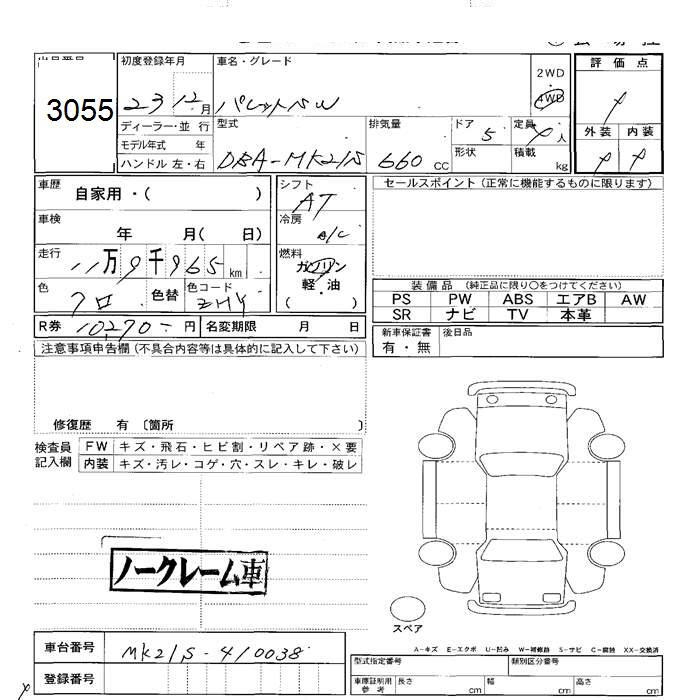 3055
初度登録年月
23 12月
車名・グレード
パレットSW
2WD
4WD
評価点
外装 内装
ディーラー・並行
モデル年式 年
ハンドル 左・右
型式
DBA-MK21S
排気量
660 CC
ドア
5
形状
定員
4人
積載
kg
車歴
自家用・( )
車検
年 月( 日)
走行
11万9千965km
色
クロ
色替
色コード
ZHY
シフト
AT
冷房
A/C
燃料
ガソリン
軽・油
( )
セールスポイント(正常に機能するものに限ります)
装備品(純正品に限り○をつけてください)
PS PW ABS エアB AW
SR ナビ TV 本革
新車保証書
有・無
後日品
R券 10,270-円
名変期限 月 日
注意事項申告欄(不具合内容等は具体的に記入して下さい)
修復歴 有〔箇所 〕
検査員
記入欄
FW キズ・飛石・ヒビ割・リペア跡・×要
内装 キズ・汚レ・コゲ・穴・スレ・キレ・破レ
ノークレーム車
スペア
A-キズ E-エクボ U-凹み W-補修跡 S-サビ C-腐蝕 XX-交換済
車台番号 MK21S-410038
登録番号
型式指定番号
類別区分番号
車庫証明用
参考
長さ cm
幅 cm
高さ cm